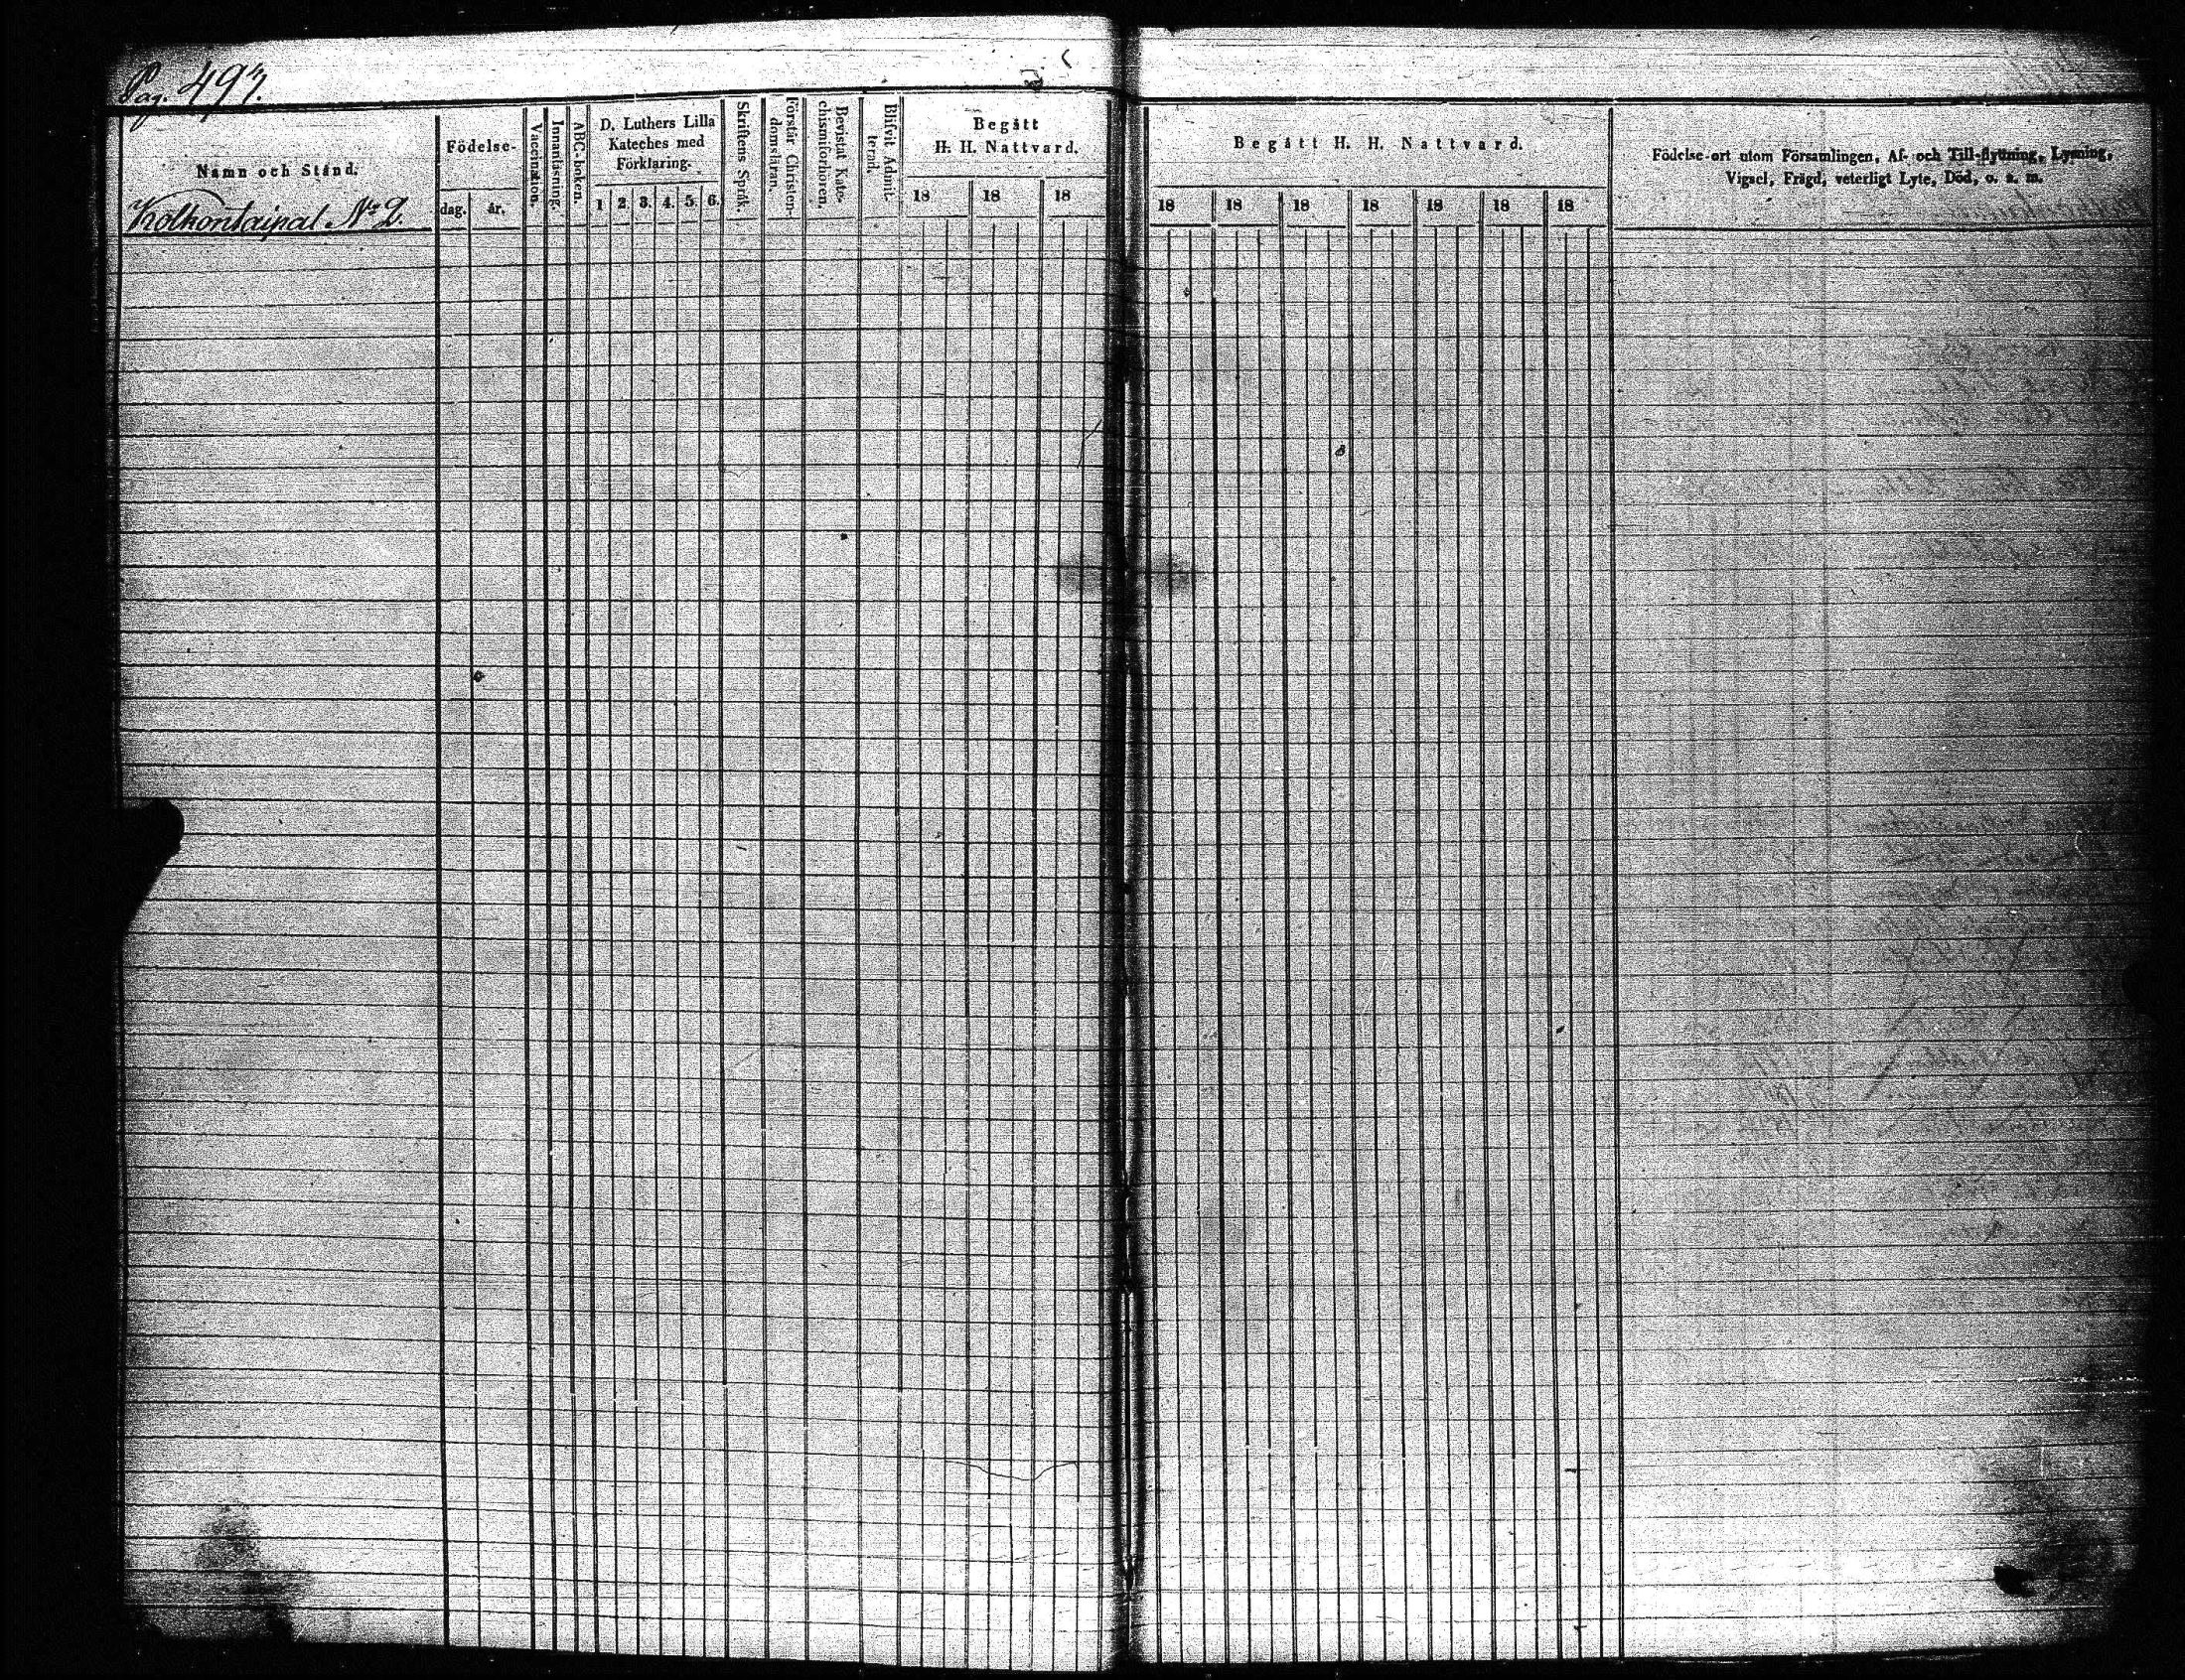 Pag. 497.
Namn och Stånd.
Kolkontaipal № 2.
Födelse-
dag. år.
Vaccination.
Innanläsning.
ABC-boken.
D. Luthers Lilla
Kateches med
Förklaring.
1 2. 3. 4. 5. 6.
Skriftens Språk.
Förstår Christen-
domsläran.
Bevistat Kate-
chismiförhören.
Blifvit Admit-
terad.
Begått
H. H. Nattvard.
18 18 18
Begått H. H. Nattvard.
18 18 18 18 18 18 18
Födelse-ort utom Församlingen, Af- och Till-flyttning, Lysning,
Vigsel, Frägd, veterligt Lyte, Död, o. s. m.